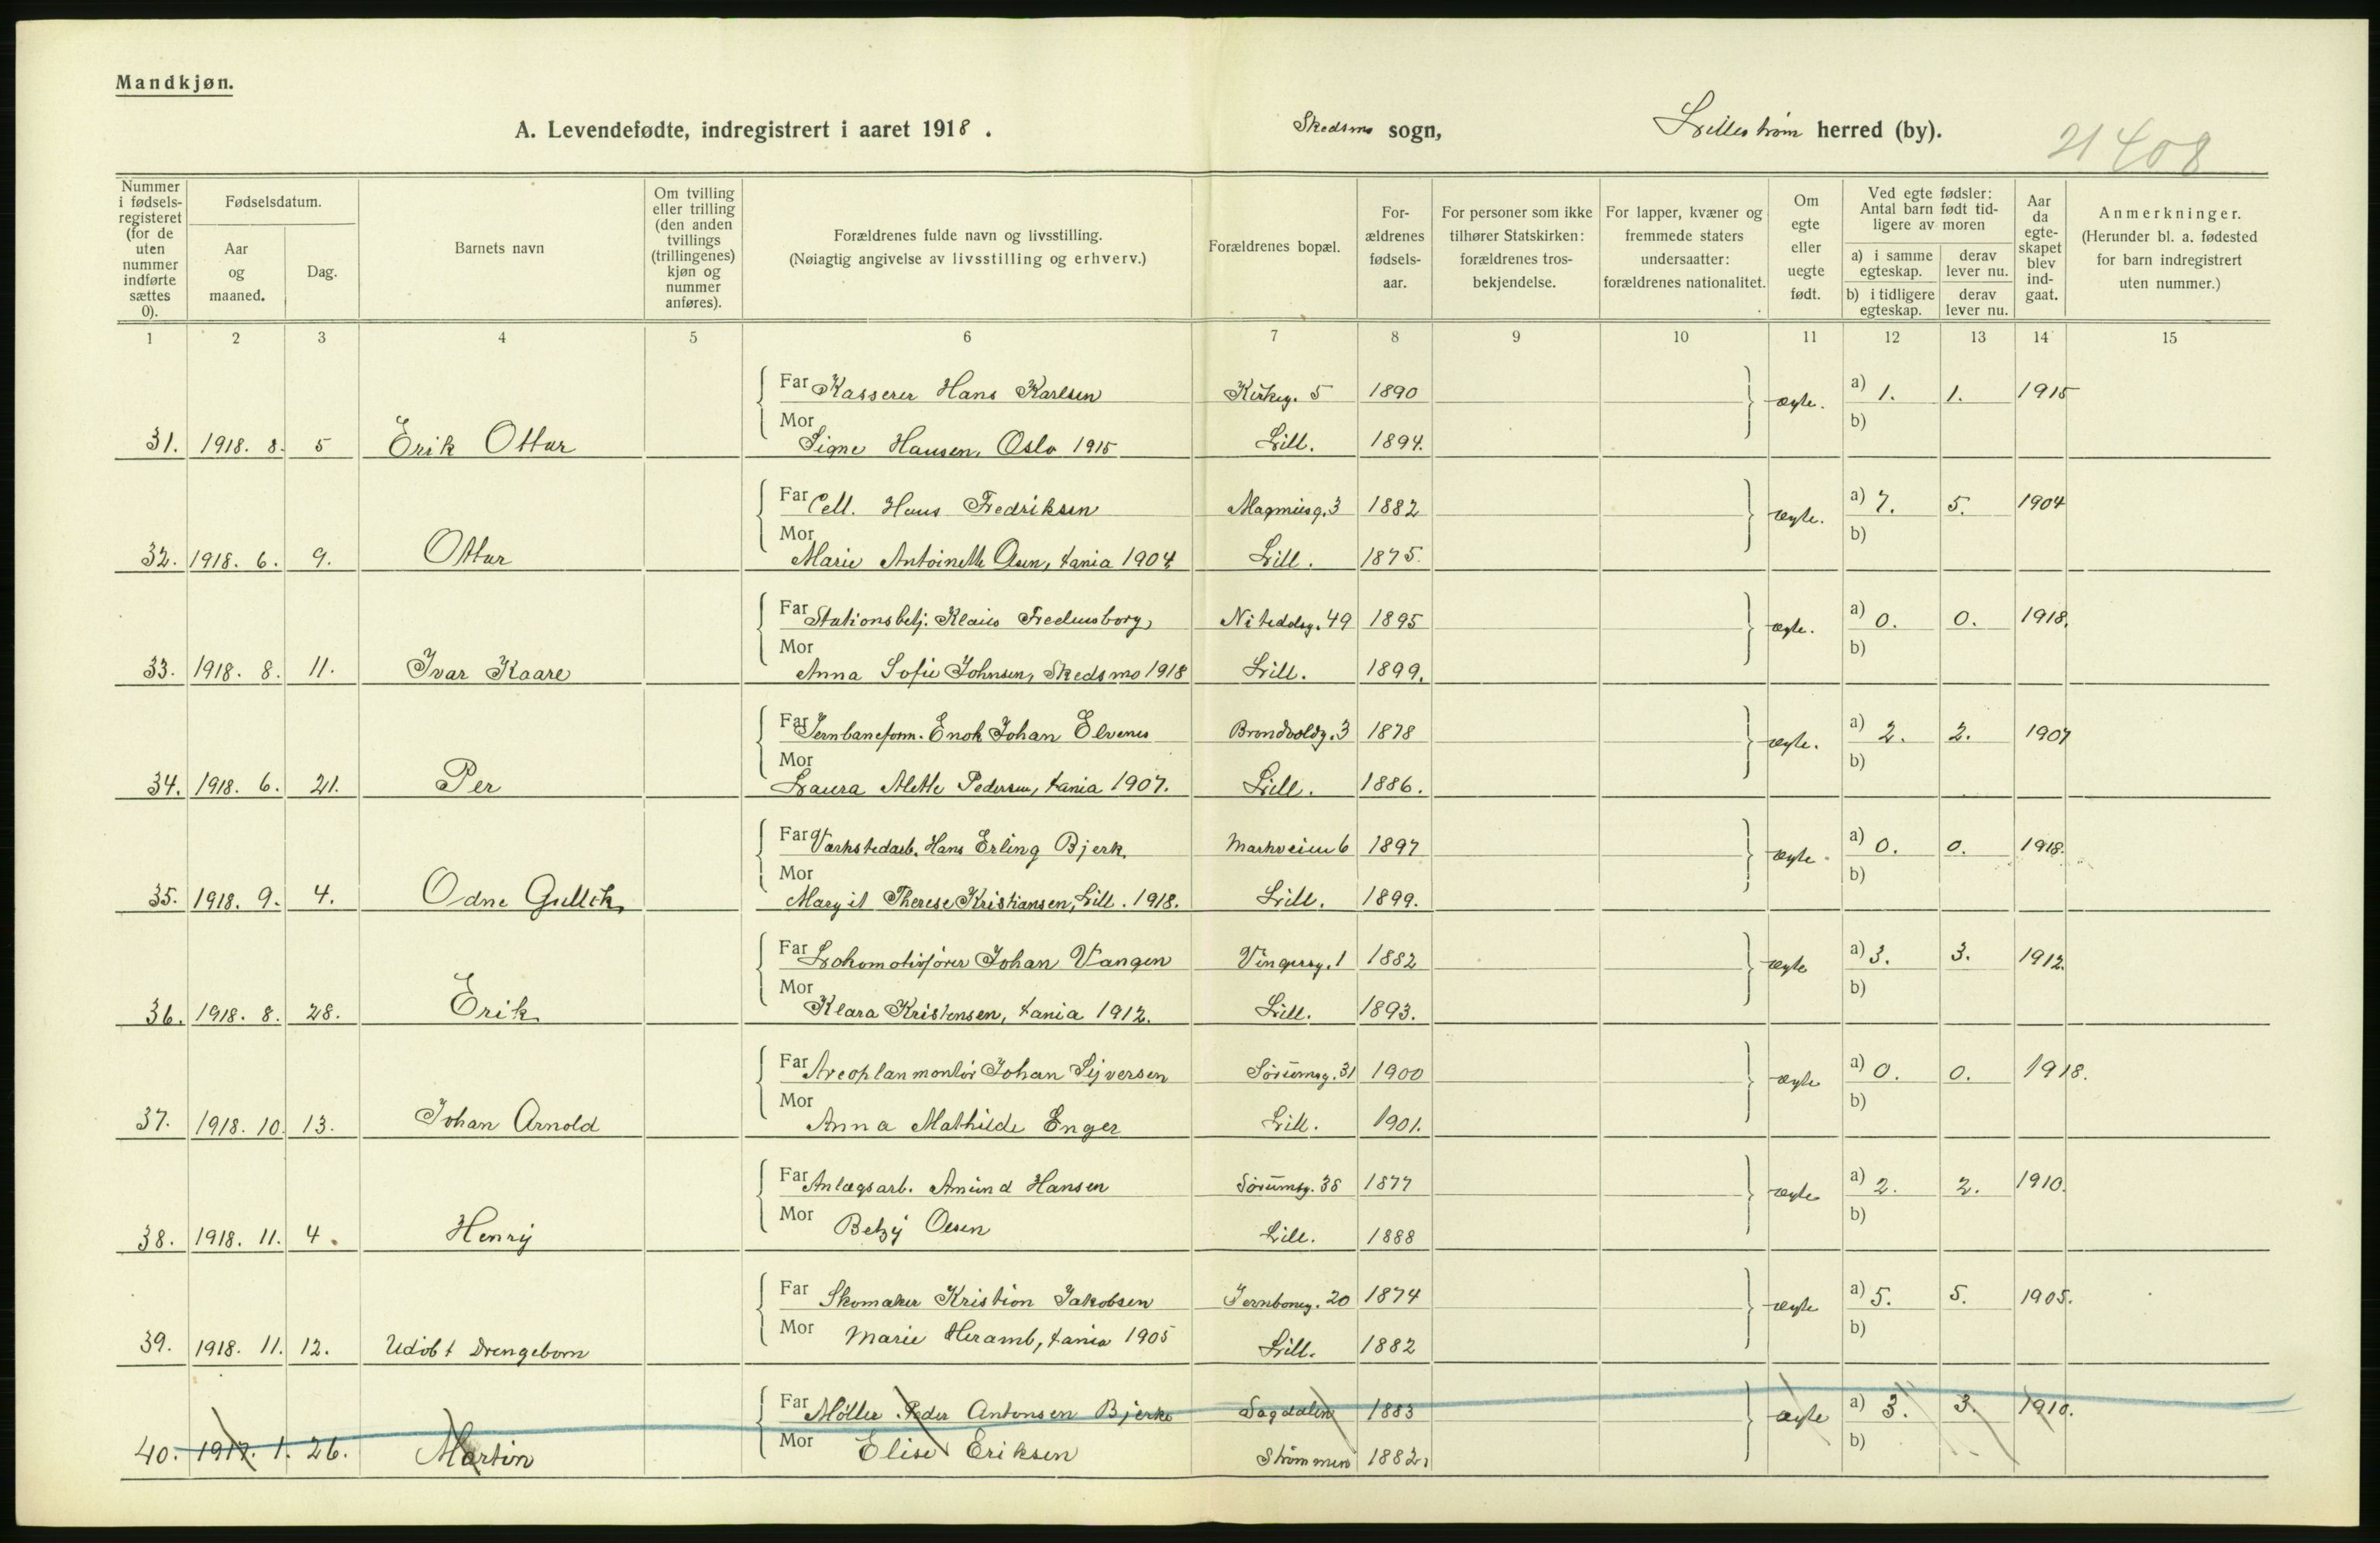 Mandkjøn.
A. Levendefødte, indregistrert i aaret 1918. Skedsmo sogn, Lillestrøm herred (by).
21408
Nummer i fødselsregisteret (for de uten nummer indførte sættes 0). | Fødselsdatum. Aar og maaned. | Dag. | Barnets navn | Om tvilling eller trilling (den anden tvillings (trillingenes) kjøn og nummer anføres). | Forældrenes fulde navn og livsstilling. (Nøiagtig angivelse av livsstilling og erhverv.) | Forældrenes bopæl. | Forældrenes fødselsaar. | For personer som ikke tilhører Statskirken: forældrenes trosbekjendelse. | For lapper, kvæner og fremmede staters undersaatter: forældrenes nationalitet. | Om egte eller uegte født. | Ved egte fødsler: Antal barn født tidligere av moren a) i samme egteskap. b) i tidligere egteskap. | derav lever nu. derav lever nu. | Aar da egteskapet blev indgaat. | Anmerkninger. (Herunder bl. a. fødested for barn indregistrert uten nummer.)
1 2 3 4 5 6 7 8 9 10 11 12 13 14 15
Far Kasserer Hans Karlsen Kirkeg. 5 1890 ægte. a) 1. 1. 1915
31. 1918. 8. 5 Erik Ottar Mor Signe Hansen, Oslo 1915 Lill. 1894. b)
Far Cell. Hans Fredriksen Magnusg. 3 1882 ægte. a) 7. 5. 1904
32. 1918. 6. 9. Ottar Mor Marie Antoinette Osen, tania 1904 Lill. 1875. b)
Far Stationsbetj. Klaus Fredensborg, Nitedalsg. 49 1895 ægte. a) 0. 0. 1918.
33. 1918. 8. 11. Ivar Kaare Mor Anna Sofie Johnsen, Skedsmo 1918 Lill. 1899. b)
Far Jernbaneform. Enok Johan Elvenes Brondvoldg. 3 1878 ægte. a) 2. 2. 1907
34. 1918. 6. 21. Per Mor Laura Alette Pedersen, tania 1907. Lill. 1886. b)
Far Værkstedarb. Hans Erling Bjerk. Markveien 6 1897 ægte. a) 0. 0. 1918.
35. 1918. 9. 4. Odne Gullik, Mor Margit Therese Kristiansen, Lill. 1918. Lill. 1899. b)
Far Lokomotivfører Johan Vangen Vingersg. 1 1882 ægte a) 3. 3. 1912.
36. 1918. 8. 28. Erik Mor Klara Kristensen, tania 1912. Lill. 1893. b)
Far Areoplanmontör Johan Syversen Sørumsg. 31 1900 ægte a) 0. 0. 1918.
37. 1918. 10. 13. Johan Arnold Mor Anna Mathilde Enger Lill. 1901. b)
Far Anlægsarb. Amund Hansen Sørumsg. 38 1877 ægte a) 2. 2. 1910.
38. 1918. 11. 4. Henry Mor Betzy Olsen Lill. 1888 b)
Far Skomaker Kristian Jakobsen Jernbaneg. 20 1874 ægte a) 5. 5. 1905.
39. 1918. 11. 12. Udöbt Drengebarn Mor Marie Heramb, tania 1905 Lill. 1882 b)
Far Möller Peder Antonsen Bjerke Sagdalen 1883 ægte a) 3. 3. 1910.
40. 1917. 1. 26. Martin Mor Elise Eriksen Strømmen 1882. b)